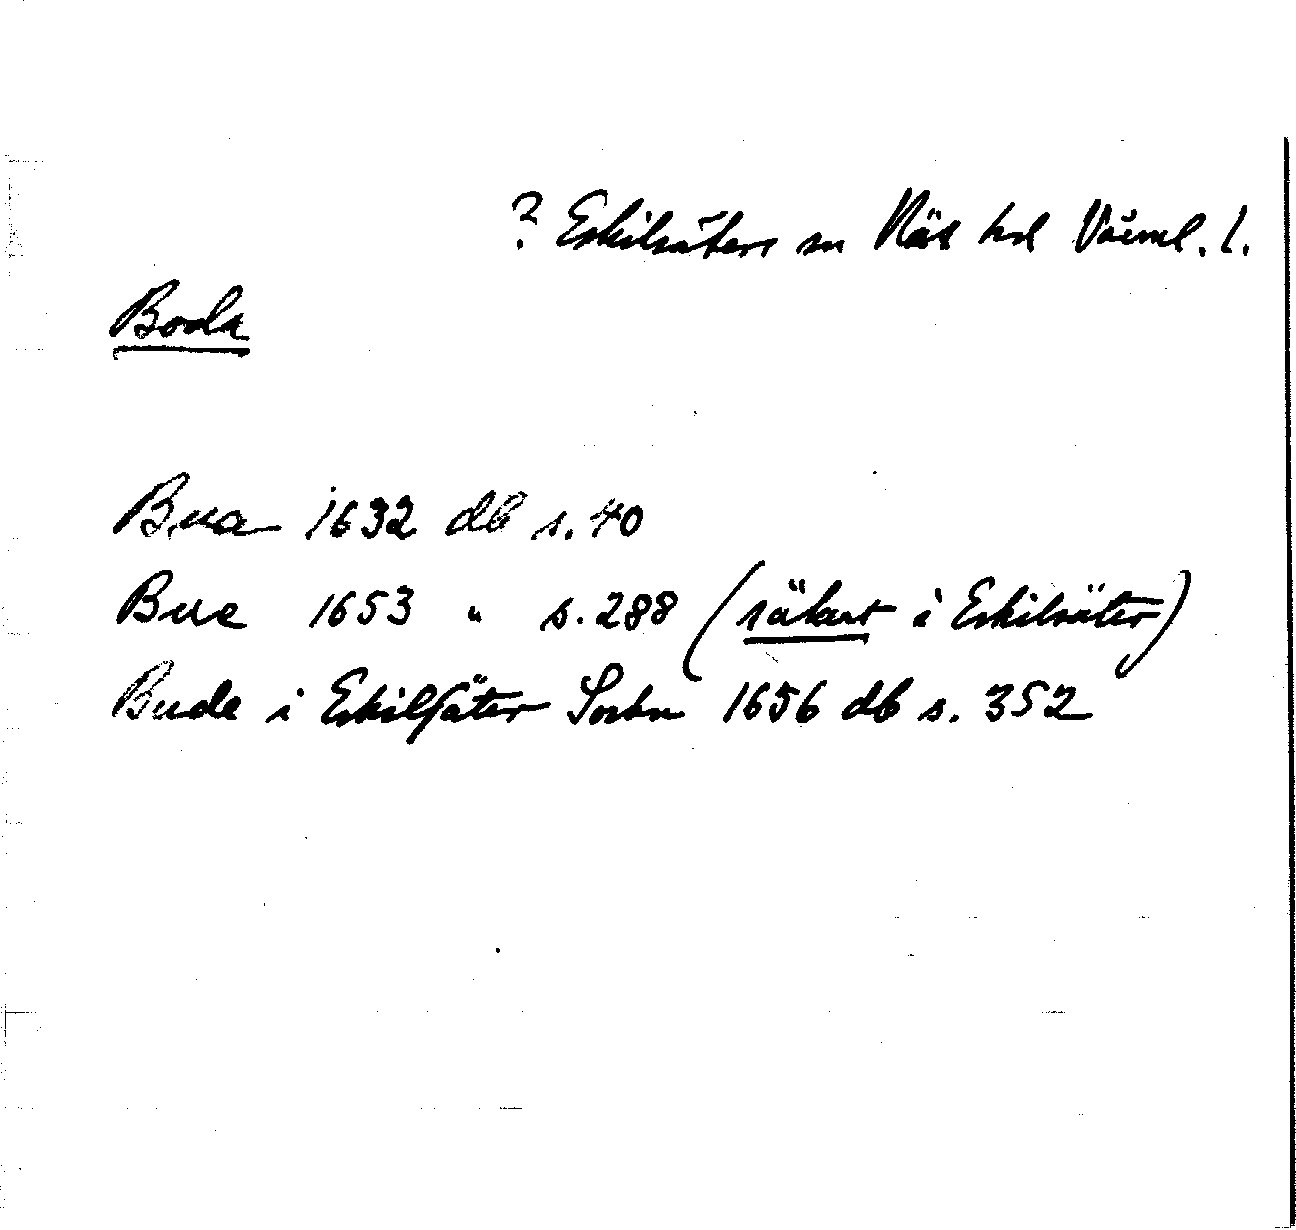 ? Eskilsäters sn Näs hd Värml. l.
Boda
Bua 1632 db s. 40
Bue 1653 " s. 288 (säkert i Eskilsäter)
Bude i Eskilsäter Sochn 1656 db s. 352